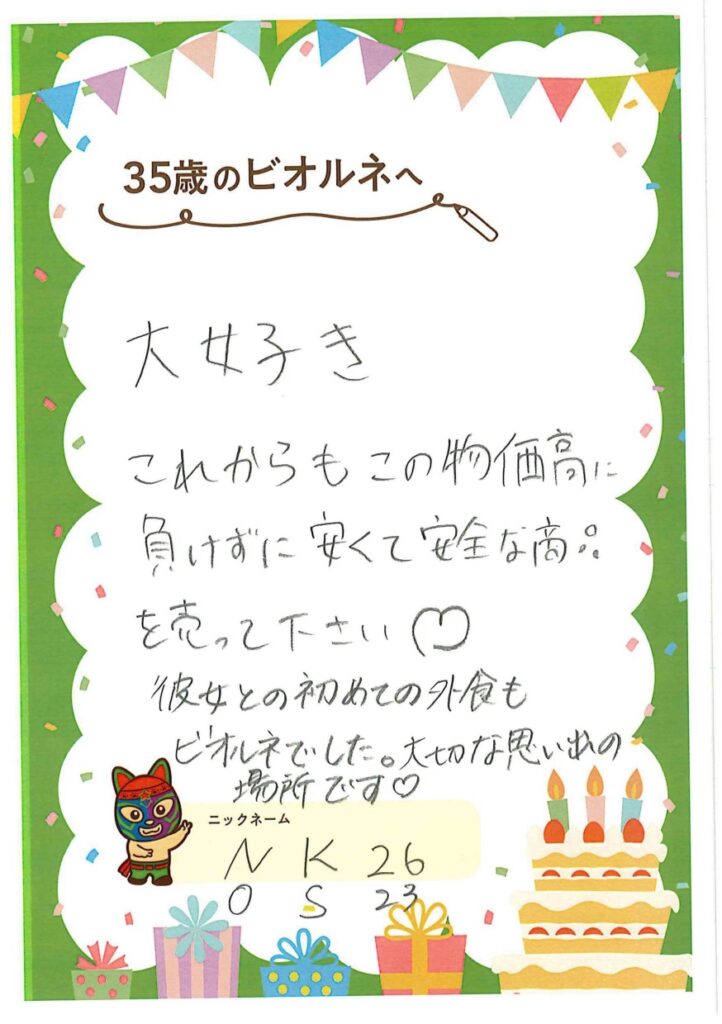 35歳のビオルネへ
大好き
これからもこの物価高に
負けずに安くて安全な商品
を売って下さい♡
彼女との初めての外食も
ビオルネでした。大切な思い出の
場所です♡
ニックネーム
N K 26
O S 23